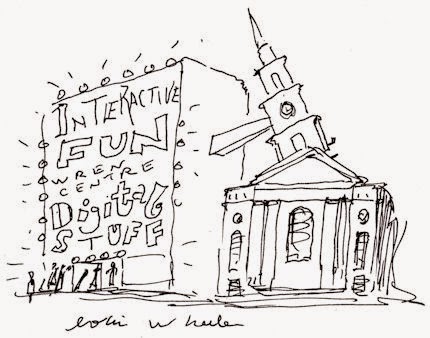 INTERACTIVE
FUN
WREN
CENTRE
Digital
STUFF
Colin Wheeler